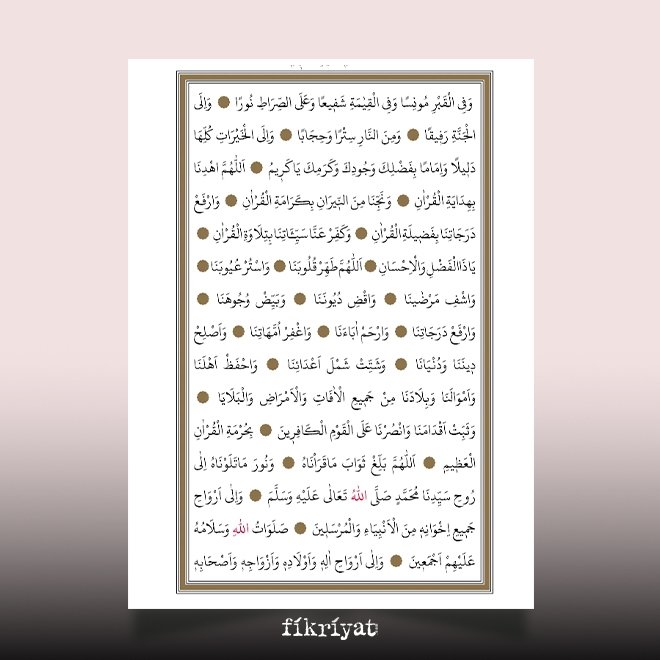 وَفِى الْقَبْرِ مُونِسًا وَفِى الْقِيٰمَةِ شَفٖيعًا وَعَلَى الصِّرَاطِ نُورًا ۞ وَاِلَى
الْجَنَّةِ رَفٖيقًا ۞ وَمِنَ النَّارِ سِتْرًا وَحِجَابًا ۞ وَاِلَى الْخَيْرَاتِ كُلِّهَا
دَلٖيلًا وَاِمَامًا بِفَضْلِكَ وَجُودِكَ وَكَرَمِكَ يَا كَرٖيمُ ۞ اَللّٰهُمَّ اهْدِنَا
بِهِدَايَةِ الْقُرْاٰنِ ۞ وَنَجِّنَا مِنَ النّٖيرَانِ بِكَرَامَةِ الْقُرْاٰنِ ۞ وَارْفَعْ
دَرَجَاتِنَا بِفَضٖيلَةِ الْقُرْاٰنِ ۞ وَكَفِّرْ عَنَّا سَيِّـَٔاتِنَا بِتِلَاوَةِ الْقُرْاٰنِ ۞
يَاذَا الْفَضْلِ وَالْاِحْسَانِ ۞ اَللّٰهُمَّ طَهِّرْ قُلُوبَنَا ۞ وَاسْتُرْ عُيُوبَنَا ۞
وَاشْفِ مَرْضٰينَا ۞ وَاقْضِ دُيُونَنَا ۞ وَبَيِّضْ وُجُوهَنَا ۞
وَارْفَعْ دَرَجَاتِنَا ۞ وَارْحَمْ اٰبَاءَنَا ۞ وَاغْفِرْ اُمَّهَاتِنَا ۞ وَاَصْلِحْ
دٖينَنَا وَدُنْيَانَا ۞ وَشَتِّتْ شَمْلَ اَعْدَائِنَا ۞ وَاحْفَظْ اَهْلَنَا
وَاَمْوَالَنَا وَبِلَادَنَا مِنْ جَمٖيعِ الْاٰفَاتِ وَالْاَمْرَاضِ وَالْبَلَايَا ۞
وَثَبِّتْ اَقْدَامَنَا وَانْصُرْنَا عَلَى الْقَوْمِ الْكَافِرٖينَ ۞ بِحُرْمَةِ الْقُرْاٰنِ
الْعَظٖيمِ ۞ اَللّٰهُمَّ بَلِّغْ ثَوَابَ مَا قَرَاْنَاهُ ۞ وَنُورَ مَا تَلَوْنَاهُ اِلٰى
رُوحِ سَيِّدِنَا مُحَمَّدٍ صَلَّى اللّٰهُ تَعَالٰى عَلَيْهِ وَسَلَّمَ ۞ وَاِلٰى اَرْوَاحِ
جَمٖيعِ اِخْوَانِهٖ مِنَ الْاَنْبِيَاءِ وَالْمُرْسَلٖينَ ۞ صَلَوَاتُ اللّٰهِ وَسَلَامُهُ
عَلَيْهِمْ اَجْمَعٖينَ ۞ وَاِلٰى اَرْوَاحِ اٰلِهٖ وَاَوْلَادِهٖ وَاَزْوَاجِهٖ وَاَصْحَابِهٖ
fikriyat